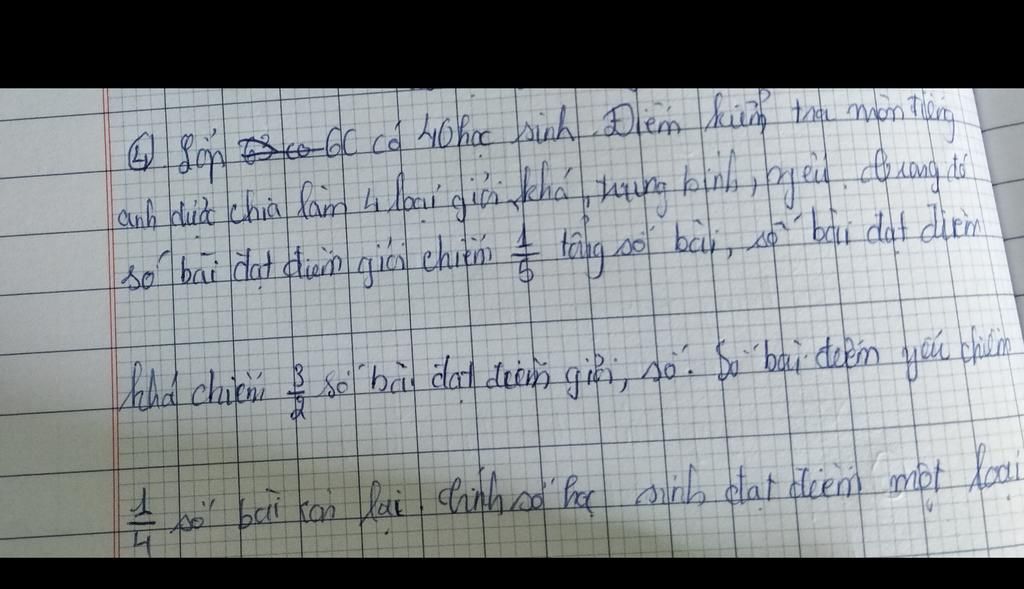 ④ Lớp 6C có 40 học sinh. Điểm kiểm tra môn tiếng
anh được chia làm 4 loại giỏi, khá, trung bình, yếu. Trong đó
số bài đạt điểm giỏi chiếm 1/5 tổng số bài, số bài đạt điểm
khá chiếm 3/2 số bài đạt điểm giỏi, số. Số bài điểm yếu chiếm
1/4 số bài còn lại, tính số học sinh đạt điểm mỗi loại